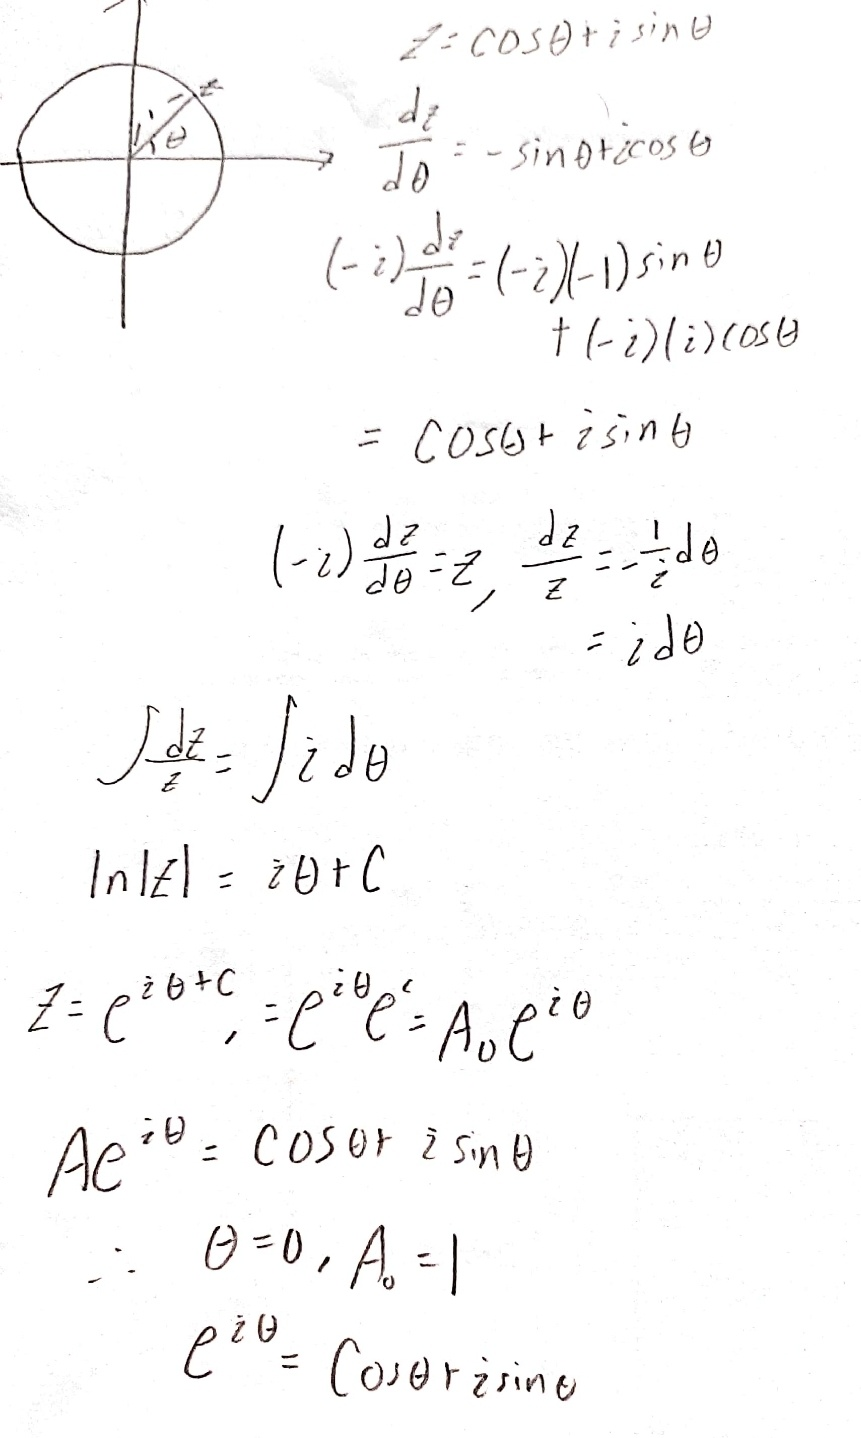 z = cosθ + i sinθ
z
θ
dz/dθ = - sinθ + i cosθ
(-i) dz/dθ = (-i)(-1) sinθ
+ (-i)(i) cosθ
= cosθ + i sinθ
(-i) dz/dθ = z, dz/z = - 1/i dθ
= i dθ
∫ dz/z = ∫ i dθ
ln|z| = iθ + C
z = e^{iθ+C}, = e^{iθ} e^{c} = A₀ e^{iθ}
Ae^{iθ} = cosθ + i sinθ
∴ θ = 0, A₀ = 1
e^{iθ} = cosθ + i sinθ